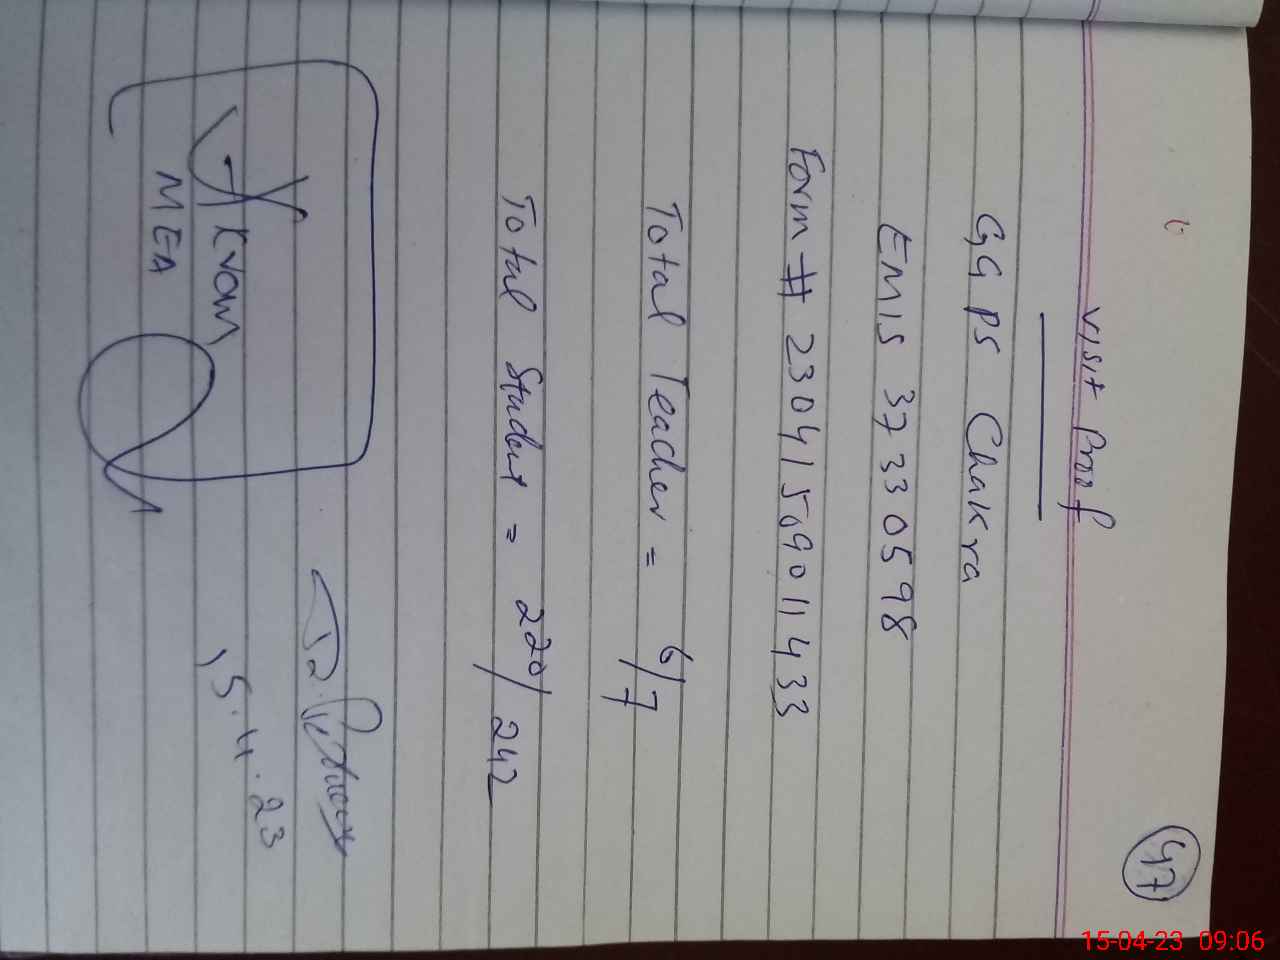 47
Visit Proof
GGPS Chakra
EMIS 37330598
Form # 23041509011433
Total Teacher = 6/7
Total Student = 220/242
Akram
MEA
15.4.23
15-04-23 09:06